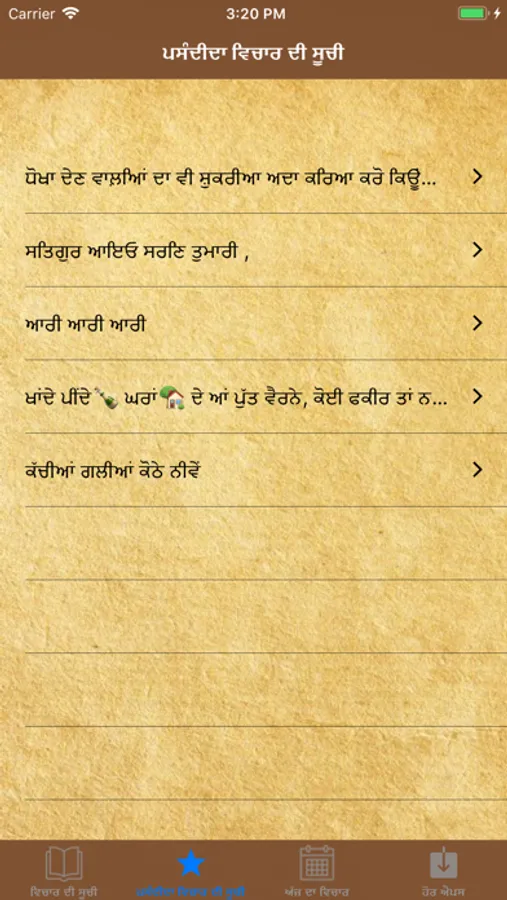 Carrier 3:20 PM
ਪਸੰਦੀਦਾ ਵਿਚਾਰ ਦੀ ਸੂਚੀ
ਧੋਖਾ ਦੇਣ ਵਾਲ਼ਆਿਂ ਦਾ ਵੀ ਸ਼ੁਕਰੀਆ ਅਦਾ ਕਰਿਆ ਕਰੋ ਕਿਉਂ...
ਸਤਿਗੁਰ ਆਇਓ ਸਰਣਿ ਤੁਮਾਰੀ ,
ਆਰੀ ਆਰੀ ਆਰੀ
ਖਾਂਦੇ ਪੀਂਦੇ🍾 ਘਰਾਂ🏡 ਦੇ ਆਂ ਪੁੱਤ ਵੈਰਨੇ, ਕੋਈ ਫਕੀਰ ਤਾਂ ਨ...
ਕੱਚੀਆਂ ਗਲੀਆਂ ਕੌਠੇ ਨੀਵੇਂ
ਵਿਚਾਰ ਦੀ ਸੂਚੀ
ਪਸੰਦੀਦਾ ਵਿਚਾਰ ਦੀ ਸੂਚੀ
ਅੱਜ ਦਾ ਵਿਚਾਰ
ਹੋਰ ਐਪਸ